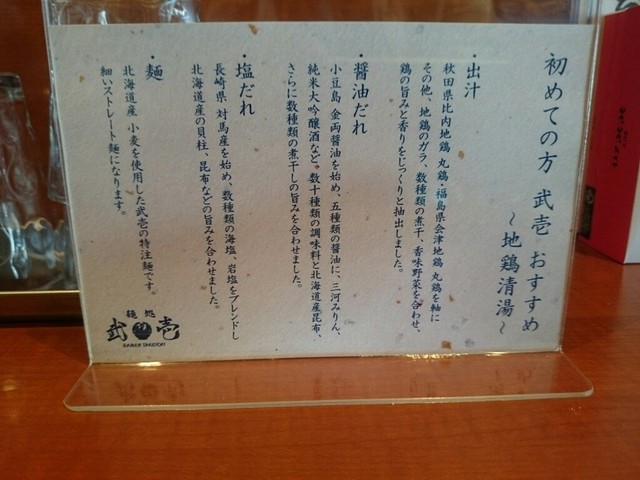 初めての方 武壱 おすすめ
～地鶏清湯～
・出汁
秋田県比内地鶏 丸鶏・福島県会津地鶏 丸鶏を軸に
その他、地鶏のガラ、数種類の煮干、香味野菜を合わせ、
鶏の旨みと香りをじっくりと抽出しました。
・醤油だれ
小豆島 金両醤油を始め、五種類の醤油に、三河みりん、
純米大吟醸酒など、数十種類の調味料と北海道産昆布、
さらに数種類の煮干しの旨みを合わせました。
・塩だれ
長崎県 対馬産を始め、数種類の海塩、岩塩をブレンドし
北海道産の貝柱、昆布などの旨みを合わせました。
・麺
北海道産 小麦を使用した武壱の特注麺です。
細いストレート麺になります。
麺処
武壱